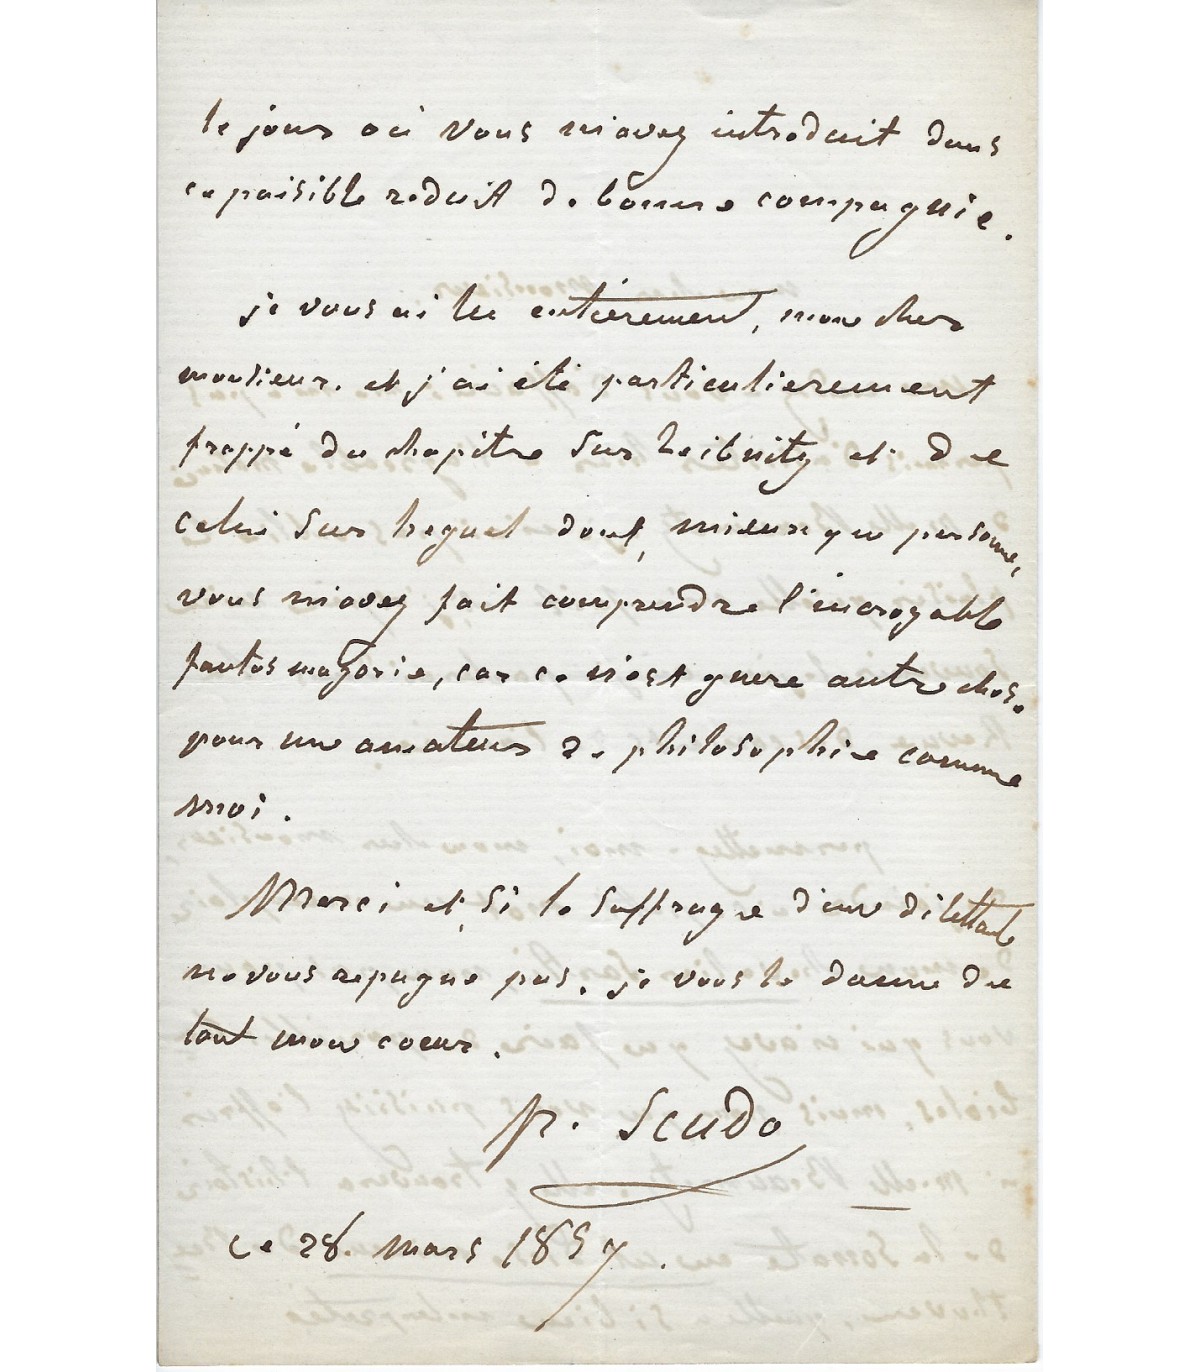 le jour où vous m'avez introduit dans
ce paisible reduit de bonne compagnie.
je vous ai lu entièrement, mon cher
monsieur. et j'ai été particulierement
frappé du chapitre sur Leibnitz et de
celui sur heguel dont, mieux que personne,
vous m'avez fait comprendre l'incroyable
fantasmagorie, car ce n'est guere autre chose
pour un amateur de philosophie comme
moi.
Merci et, si le suffrage d'un dilettante
ne vous repugne pas, je vous le donne de
tout mon coeur.
P. Scudo
Ce 28. Mars 1857.